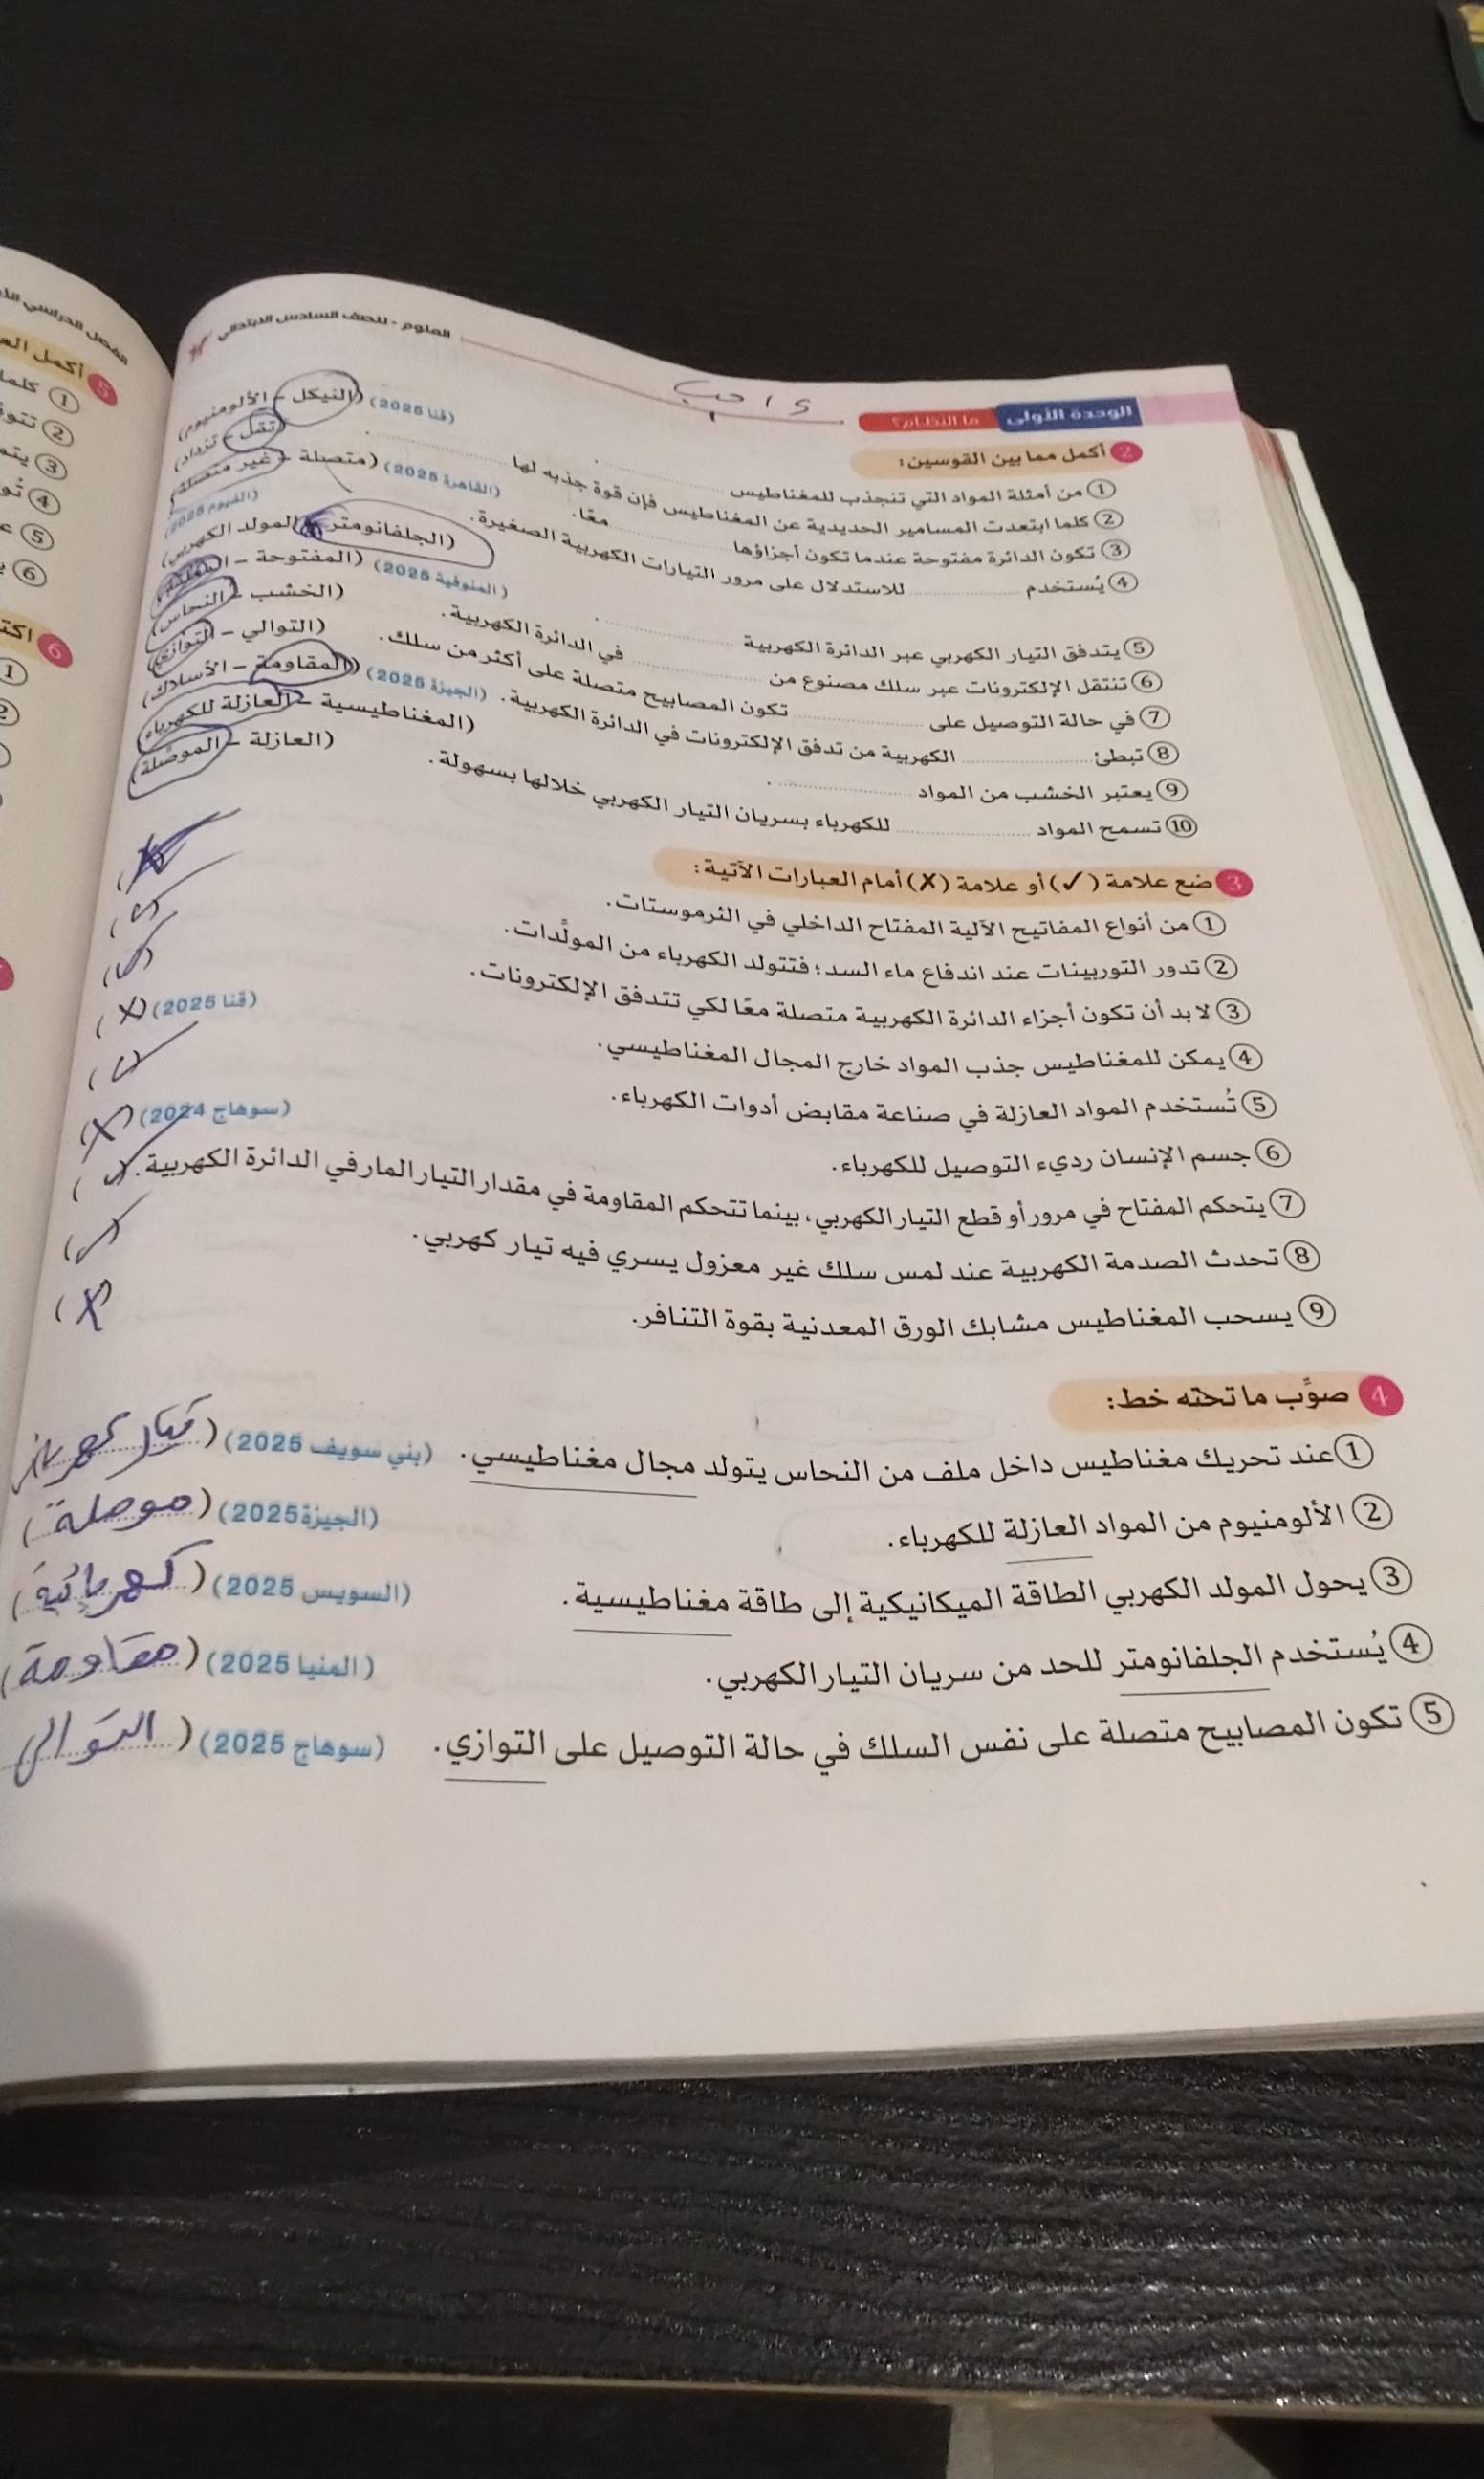 العلوم - للصف السادس الابتدائي
الوحدة الأولى ما النظام؟
واجب
2 أكمل مما بين القوسين:
1 من أمثلة المواد التي تنجذب للمغناطيس (قنا 2025) (النيكل - الألومنيوم)
2 كلما ابتعدت المسامير الحديدية عن المغناطيس فإن قوة جذبه لها (تقل - تزداد)
3 تكون الدائرة مفتوحة عندما تكون أجزاؤها معًا. (القاهرة 2025) (متصلة - غير متصلة)
4 يُستخدم للاستدلال على مرور التيارات الكهربية الصغيرة. (الفيوم 2025) (الجلفانومتر - المولد الكهربي)
5 يتدفق التيار الكهربي عبر الدائرة الكهربية (المنوفية 2025) (المفتوحة -
6 تنتقل الإلكترونات عبر سلك مصنوع من في الدائرة الكهربية. (الخشب - النحاس)
7 في حالة التوصيل على تكون المصابيح متصلة على أكثر من سلك. (التوالي - التوازي)
8 تبطئ الكهربية من تدفق الإلكترونات في الدائرة الكهربية. (الجيزة 2025) (المقاومة - الأسلاك)
9 يعتبر الخشب من المواد (المغناطيسية - العازلة للكهرباء)
10 تسمح المواد للكهرباء بسريان التيار الكهربي خلالها بسهولة. (العازلة - الموصلة)
3 ضع علامة (✓) أو علامة (✗) أمام العبارات الآتية:
1 من أنواع المفاتيح الآلية المفتاح الداخلي في الثرموستات.
2 تدور التوربينات عند اندفاع ماء السد؛ فتتولد الكهرباء من المولِّدات. (✓)
3 لا بد أن تكون أجزاء الدائرة الكهربية متصلة معًا لكي تتدفق الإلكترونات. (✓)
4 يمكن للمغناطيس جذب المواد خارج المجال المغناطيسي. (قنا 2025) (✗)
5 تُستخدم المواد العازلة في صناعة مقابض أدوات الكهرباء. (✓)
6 جسم الإنسان رديء التوصيل للكهرباء. (سوهاج 2024) (✗)
7 يتحكم المفتاح في مرور أو قطع التيار الكهربي، بينما تتحكم المقاومة في مقدار التيار المار في الدائرة الكهربية. (✓)
8 تحدث الصدمة الكهربية عند لمس سلك غير معزول يسري فيه تيار كهربي. (✓)
9 يسحب المغناطيس مشابك الورق المعدنية بقوة التنافر. (✗)
4 صوِّب ما تحته خط:
1 عند تحريك مغناطيس داخل ملف من النحاس يتولد مجال مغناطيسي. (بني سويف 2025) (تيار
2 الألومنيوم من المواد العازلة للكهرباء. (الجيزة 2025) (موصلة)
3 يحول المولد الكهربي الطاقة الميكانيكية إلى طاقة مغناطيسية. (السويس 2025) (كهربائية)
4 يُستخدم الجلفانومتر للحد من سريان التيار الكهربي. (المنيا 2025) (مقاومة)
5 تكون المصابيح متصلة على نفس السلك في حالة التوصيل على التوازي. (سوهاج 2025) (التوالي)
الفصل الدراسي
5
1 كلما
2
3
4
5
6
6
1